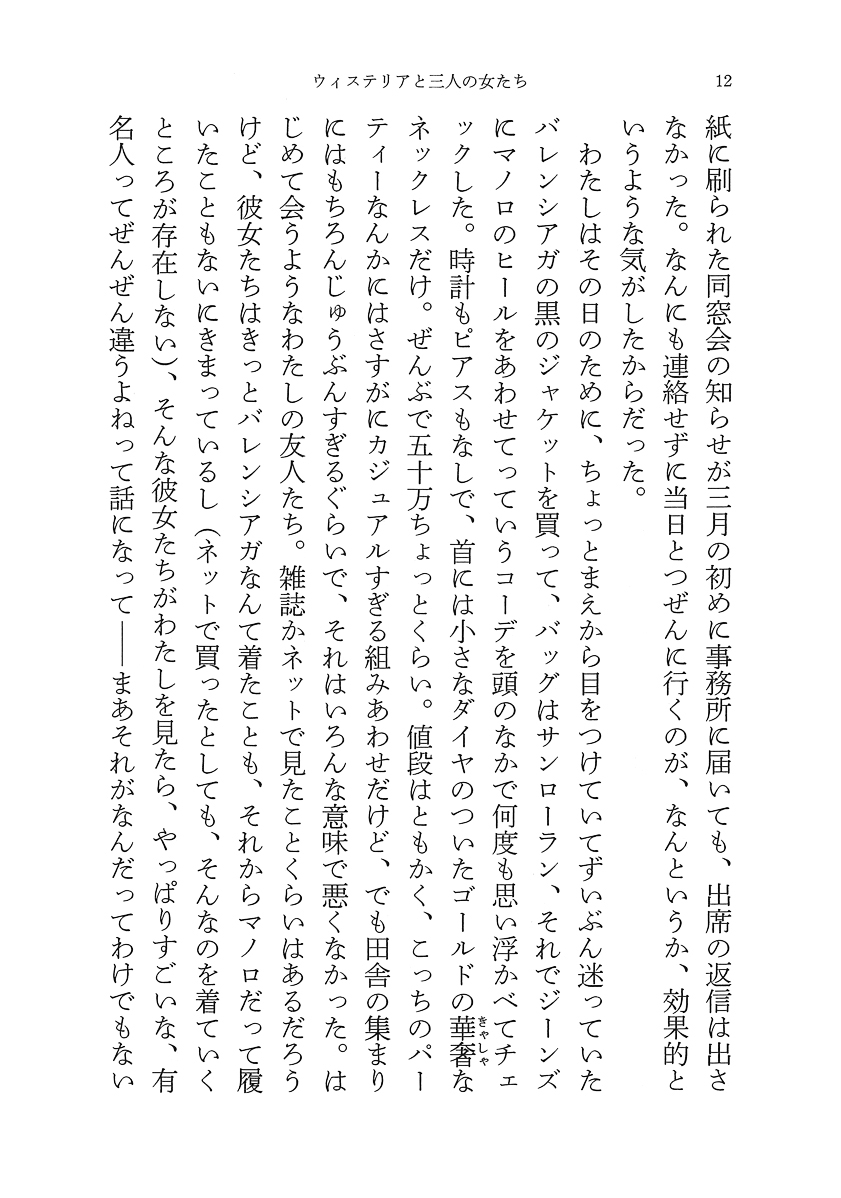 ウィステリアと三人の女たち
12
紙に刷られた同窓会の知らせが三月の初めに事務所に届いても、出席の返信は出さ
なかった。なんにも連絡せずに当日とつぜんに行くのが、なんというか、効果的と
いうような気がしたからだった。
わたしはその日のために、ちょっとまえから目をつけていてずいぶん迷っていた
バレンシアガの黒のジャケットを買って、バッグはサンローラン、それでジーンズ
にマノロのヒールをあわせてっていうコーデを頭のなかで何度も思い浮かべてチェ
ックした。時計もピアスもなしで、首には小さなダイヤのついたゴールドの華奢な
きゃしゃ
ネックレスだけ。ぜんぶで五十万ちょっとくらい。値段はともかく、こっちのパー
ティーなんかにはさすがにカジュアルすぎる組みあわせだけど、でも田舎の集まり
にはもちろんじゅうぶんすぎるぐらいで、それはいろんな意味で悪くなかった。は
じめて会うようなわたしの友人たち。雑誌かネットで見たことくらいはあるだろう
けど、彼女たちはきっとバレンシアガなんて着たことも、それからマノロだって履
いたこともないにきまっているし（ネットで買ったとしても、そんなのを着ていく
ところが存在しない）、そんな彼女たちがわたしを見たら、やっぱりすごいな、有
名人ってぜんぜん違うよねって話になって――まあそれがなんだってわけでもない